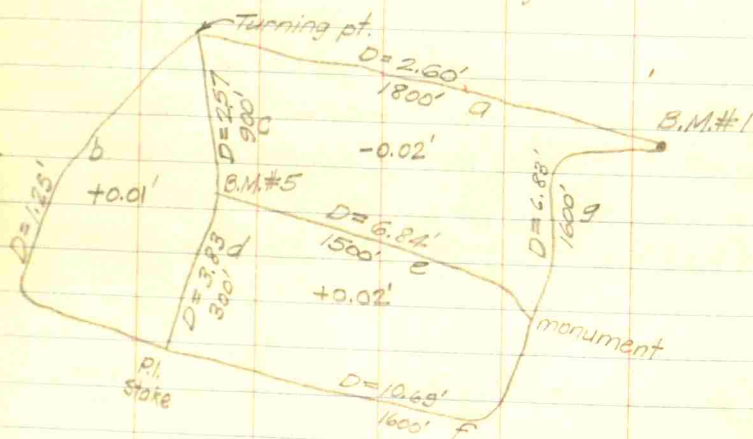 Turning pt.
D=2.60'
1800'
a
B.M.#1
D=2.57
900'
c
-0.02'
b
+0.01'
D=1.25'
B.M.#5
D=6.84'
1500'
e
D=6.83'
1600'
g
D=3.83
300'
d
+0.02'
monument
P.I.
Stake
D=10.69'
1600'
f